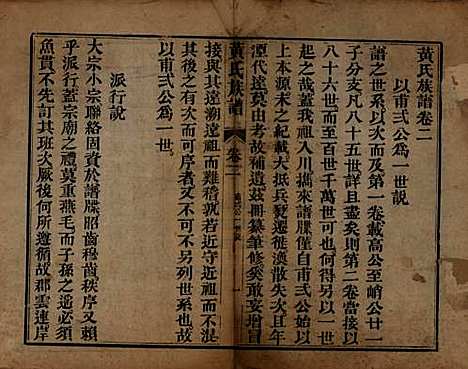 黃氏族譜卷二
以甫弍公為一世說
譜之世系以次而及第一卷載高公至峭公廿一
子分支凡八十五世詳且盡矣則第二卷當接以
八十六世而至于百千萬世可也何得另以一世
起之哉蓋我祖入川攜來譜牒僅自甫弍公始以
上本源末之紀載大抵兵燹遷徙渙散失次且年
湮代遠莫由考故補遺茲冊纂筆修矣敢妄增冒
接與其遠溯遠祖而難稽孰若近守近祖而不混
黃氏族譜
卷二
一
之為有次而可序者又不可不另列世系也故
以甫弍公為一世。
派行說
大宗小宗聯絡固資於譜牒昭齒穆齒秩序又賴
乎派行蓋宗廟之禮莫重燕毛而子孫之遙必須
魚貫不先訂其班次厥後何所遵循故郡雲連岸